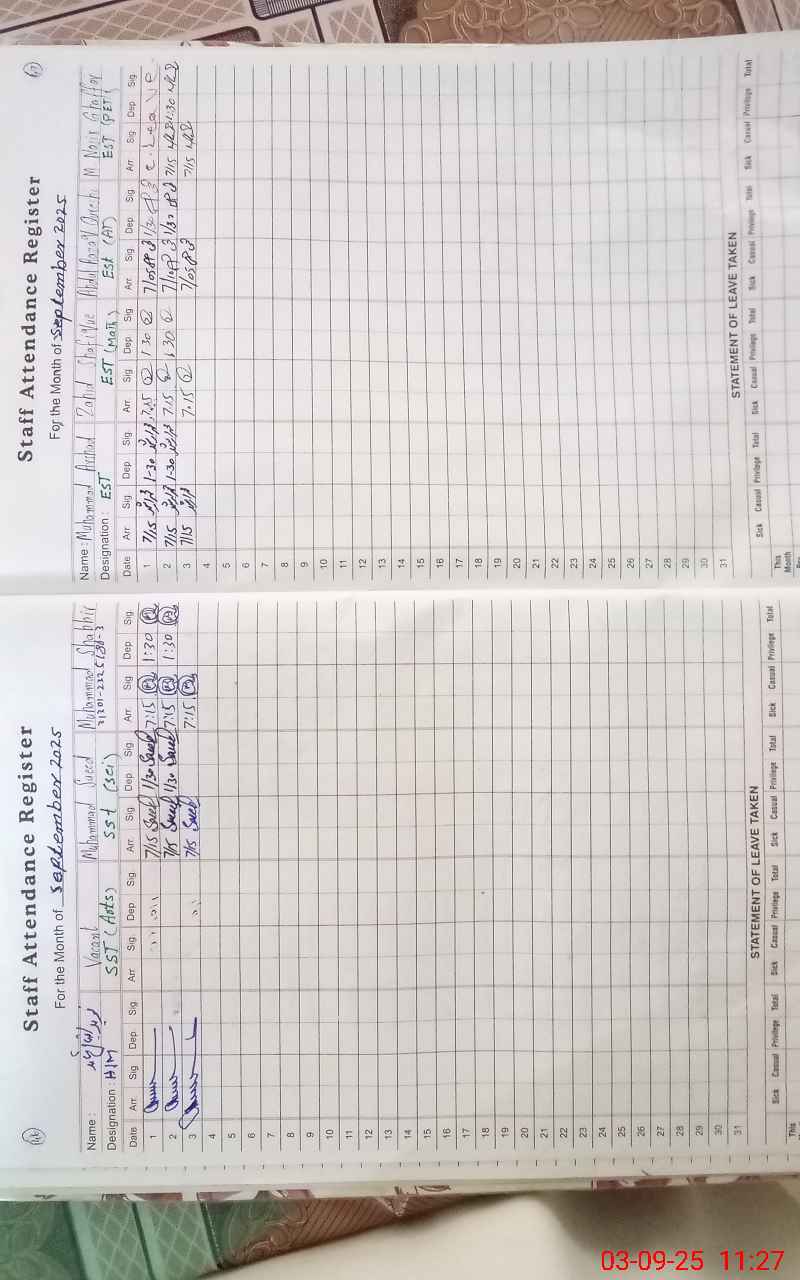 Staff Attendance Register
For the Month of September 2025
Name : Vacant Muhammad Saeed Muhammad Shabbir
Designation : H/M SST (Arts) SSt (Sci)
Date Arr. Sig Dep Sig Arr Sig. Dep Sig Arr. Sig Dep Sig Arr Sig Dep Sig
1 7/15 Saeed 1/30 Saeed 7:15 1:30
2 7/15 Saeed 1/30 Saeed 7:15 1:30
3 7/15 Saeed 7:15
4
5
6
7
8
9
10
11
12
13
14
15
16
17
18
19
20
21
22
23
24
25
26
27
28
29
30
31
STATEMENT OF LEAVE TAKEN
Sick Casual Privilege Total Sick Casual Privilege Total Sick Casual Privilege Total Sick Casual Privilege Total
This
47
Staff Attendance Register
For the Month of September 2025
Name : Muhammad Arshad Zahid Shafique Abdul Razaq Qureshi M
Designation : EST EST (Math) Est (AT) EST (PET)
Date Arr Sig Dep Sig Arr. Sig Dep Sig Arr. Sig Dep Sig Arr Sig Dep Sig
1 7/15 1-30 7.15 1 30 7/05 1/30 C. Leave
2 7/15 1-30 7.15 1 30 7/10 1/30 7/15 1:30
3 7/15 7.15 7/05 7/15
4
5
6
7
8
9
10
11
12
13
14
15
16
17
18
19
20
21
22
23
24
25
26
27
28
29
30
31
STATEMENT OF LEAVE TAKEN
Sick Casual Privilege Total Sick Casual Privilege Total Sick Casual Privilege Total Sick Casual Privilege Total
This
Month
03-09-25 11:27